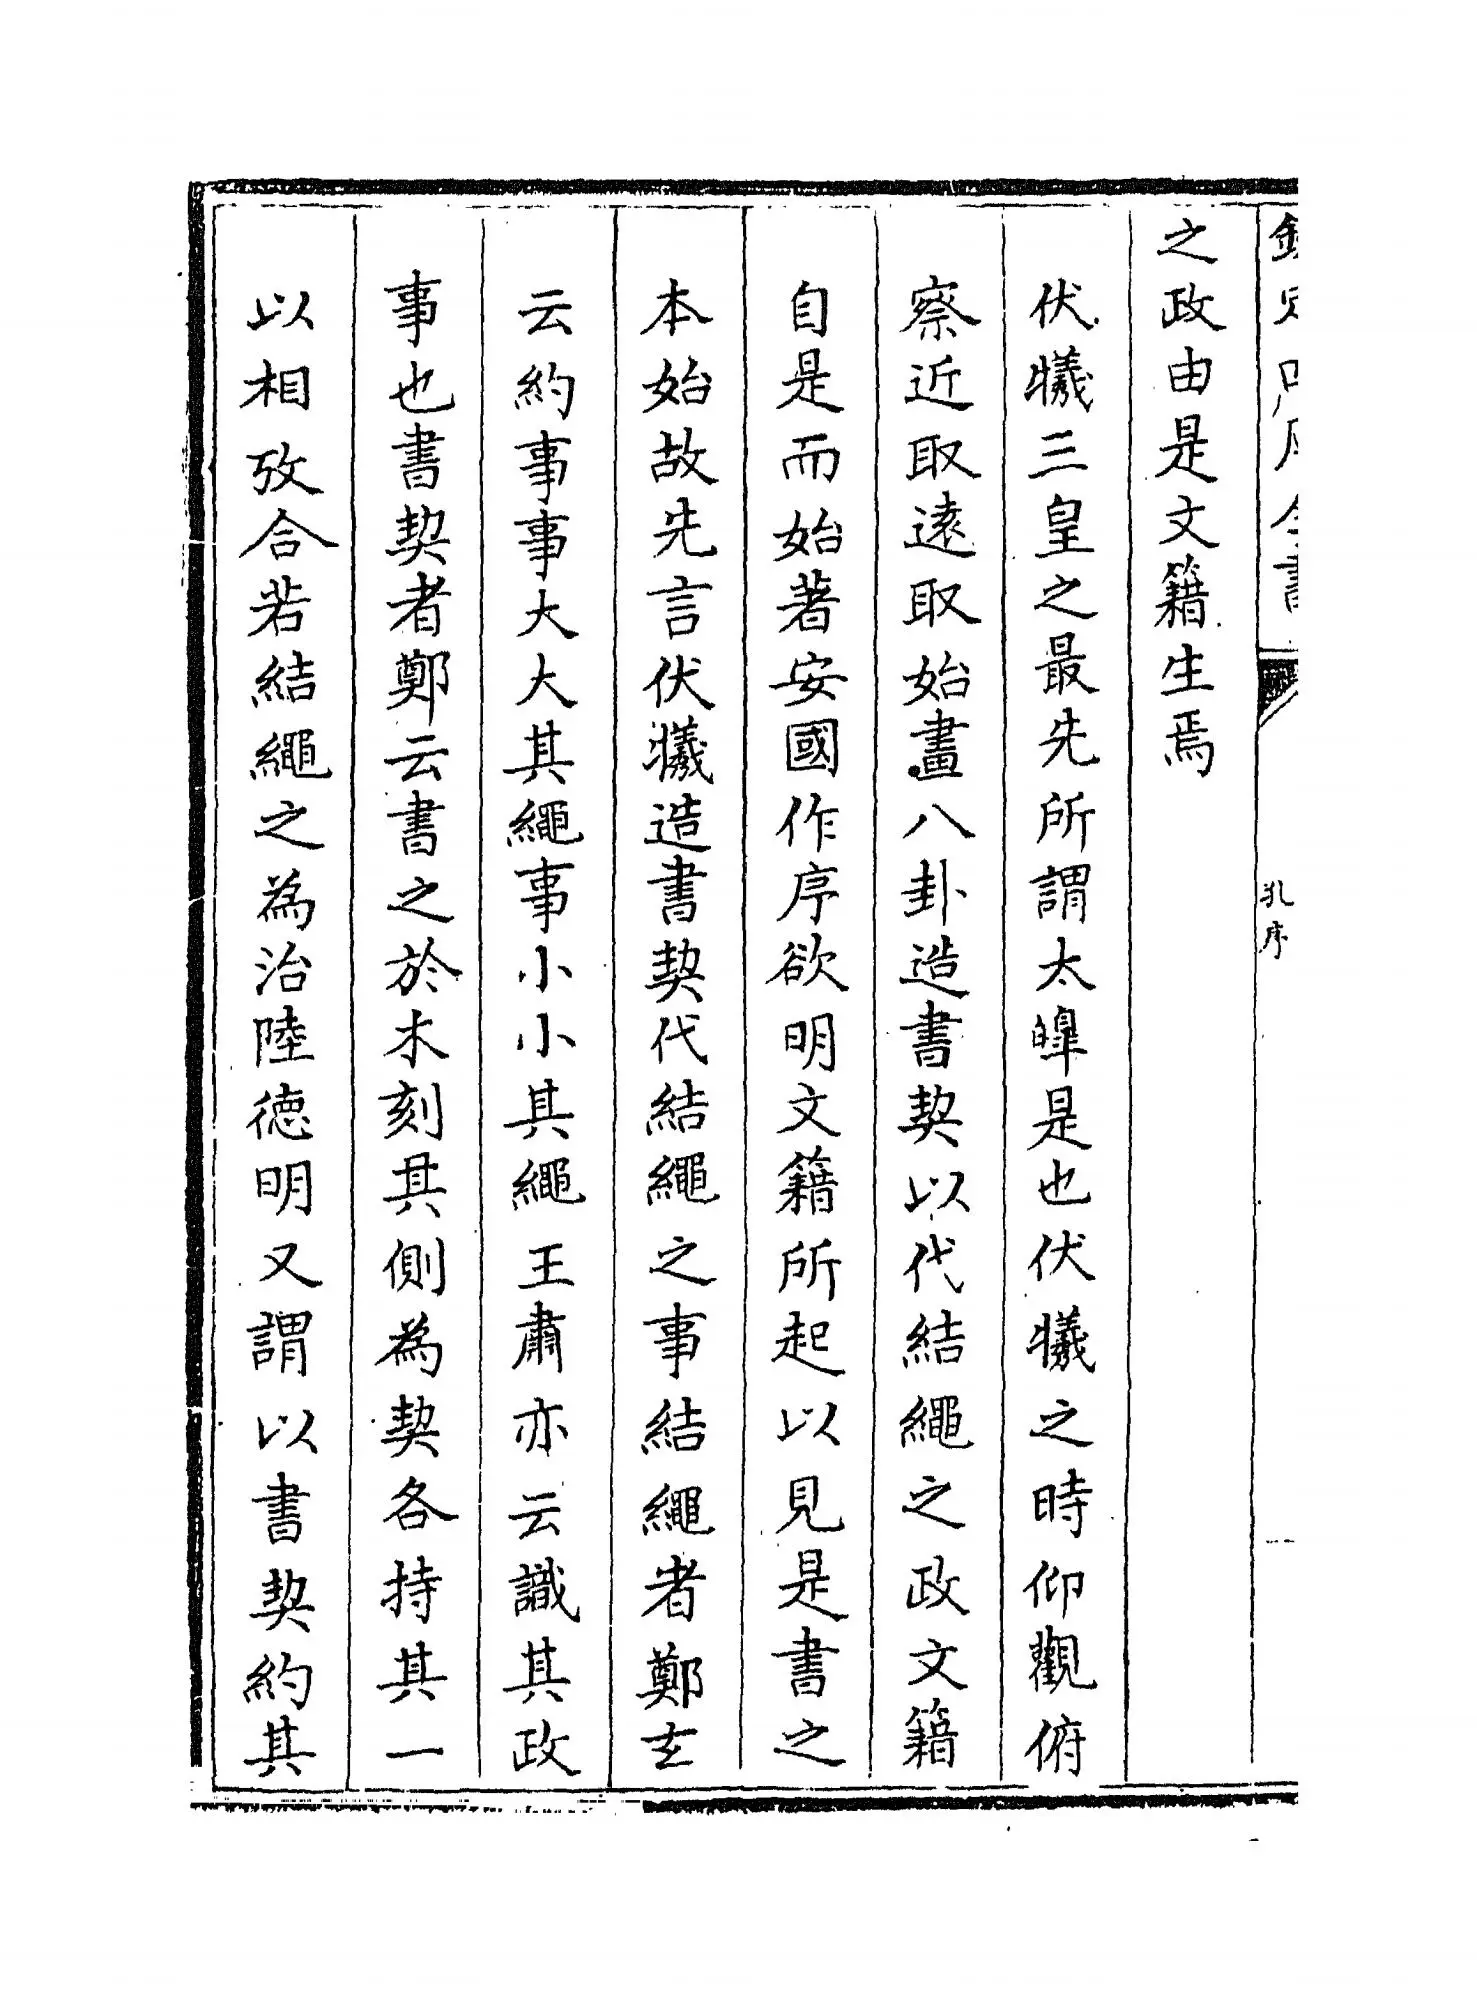 欽定四庫全書
孔序
之政由是文籍生焉
伏犧三皇之最先所謂太皥是也伏犧之時仰觀俯
察近取遠取始畫八卦造書契以代結繩之政文籍
自是而始著安國作序欲明文籍所起以見是書之
本始故先言伏犧造書契代結繩之事結繩者鄭玄
云約事事大大其繩事小小其繩王肅亦云識其政
事也書契者鄭云書之於木刻其側為契各持其一
以相攷合若結繩之為治陸徳明又謂以書契約其